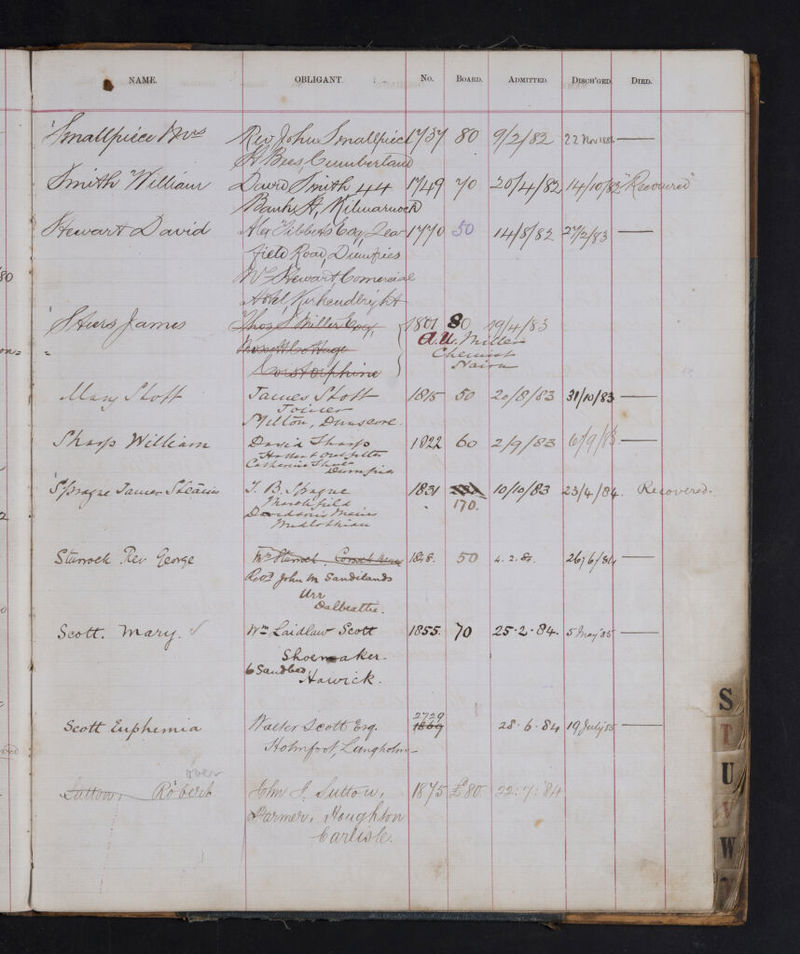 NAME. OBLIGANT. No. BOARD. ADMITTED. DISCH'GED. DIED.
Smallpiece Mrs Rev John Smallpiece 1737 80 9/2/82 22 Nov 188
St Bees, Cumberland
Smith William David Smith 44 1749 70 20/4/82 14/10/82 "Recovered"
Bank St, Kilmarnock
Stewart David Alex Gibbens Esq, Dear 1770 50 14/8/82 27/2/83
field Road, Dumfries
Wm Stewart Comercial
Hotel, Kirkcudbright
80
Stiers James Thos S Miller Esq, 1801 80 19/4/83
A.U. Miller
Cottage Chemist
Corstorphine Nairn
Mary Stott James Stott 1815 50 20/8/83 31/10/83
Joiner
Milton, Dunscore.
Sharp William David Sharp 1822 60 2/9/83 6/9/83
Hatter & Outfitter
Catherine Street
Dumfries
Sprague James T. B. Sprague 1831 10/10/83 23/4/84. Recovered.
170.
Davidsons Mains
Midlothian
Sturrock Rev George Wm Sturrock. 1848. 50 4.2.84. 26/6/84
Revd John M Sandilands
Urr
Dalbeattie.
Scott. Mary. ✓ Wm Laidlaw Scott 1855. 70 25.2.84. 5 May '85
Shoemaker.
6 Sandbed
Hawick.
2729
Scott Euphemia Walter Scott Esq. 1869 28.6.84 19 July '85
Holmfoot, Langholm
over
Sutton, Robert John S. Sutton, 1875 £80 22:7:84
Farmer, Houghton
Carlisle.
S
T
U
V
W